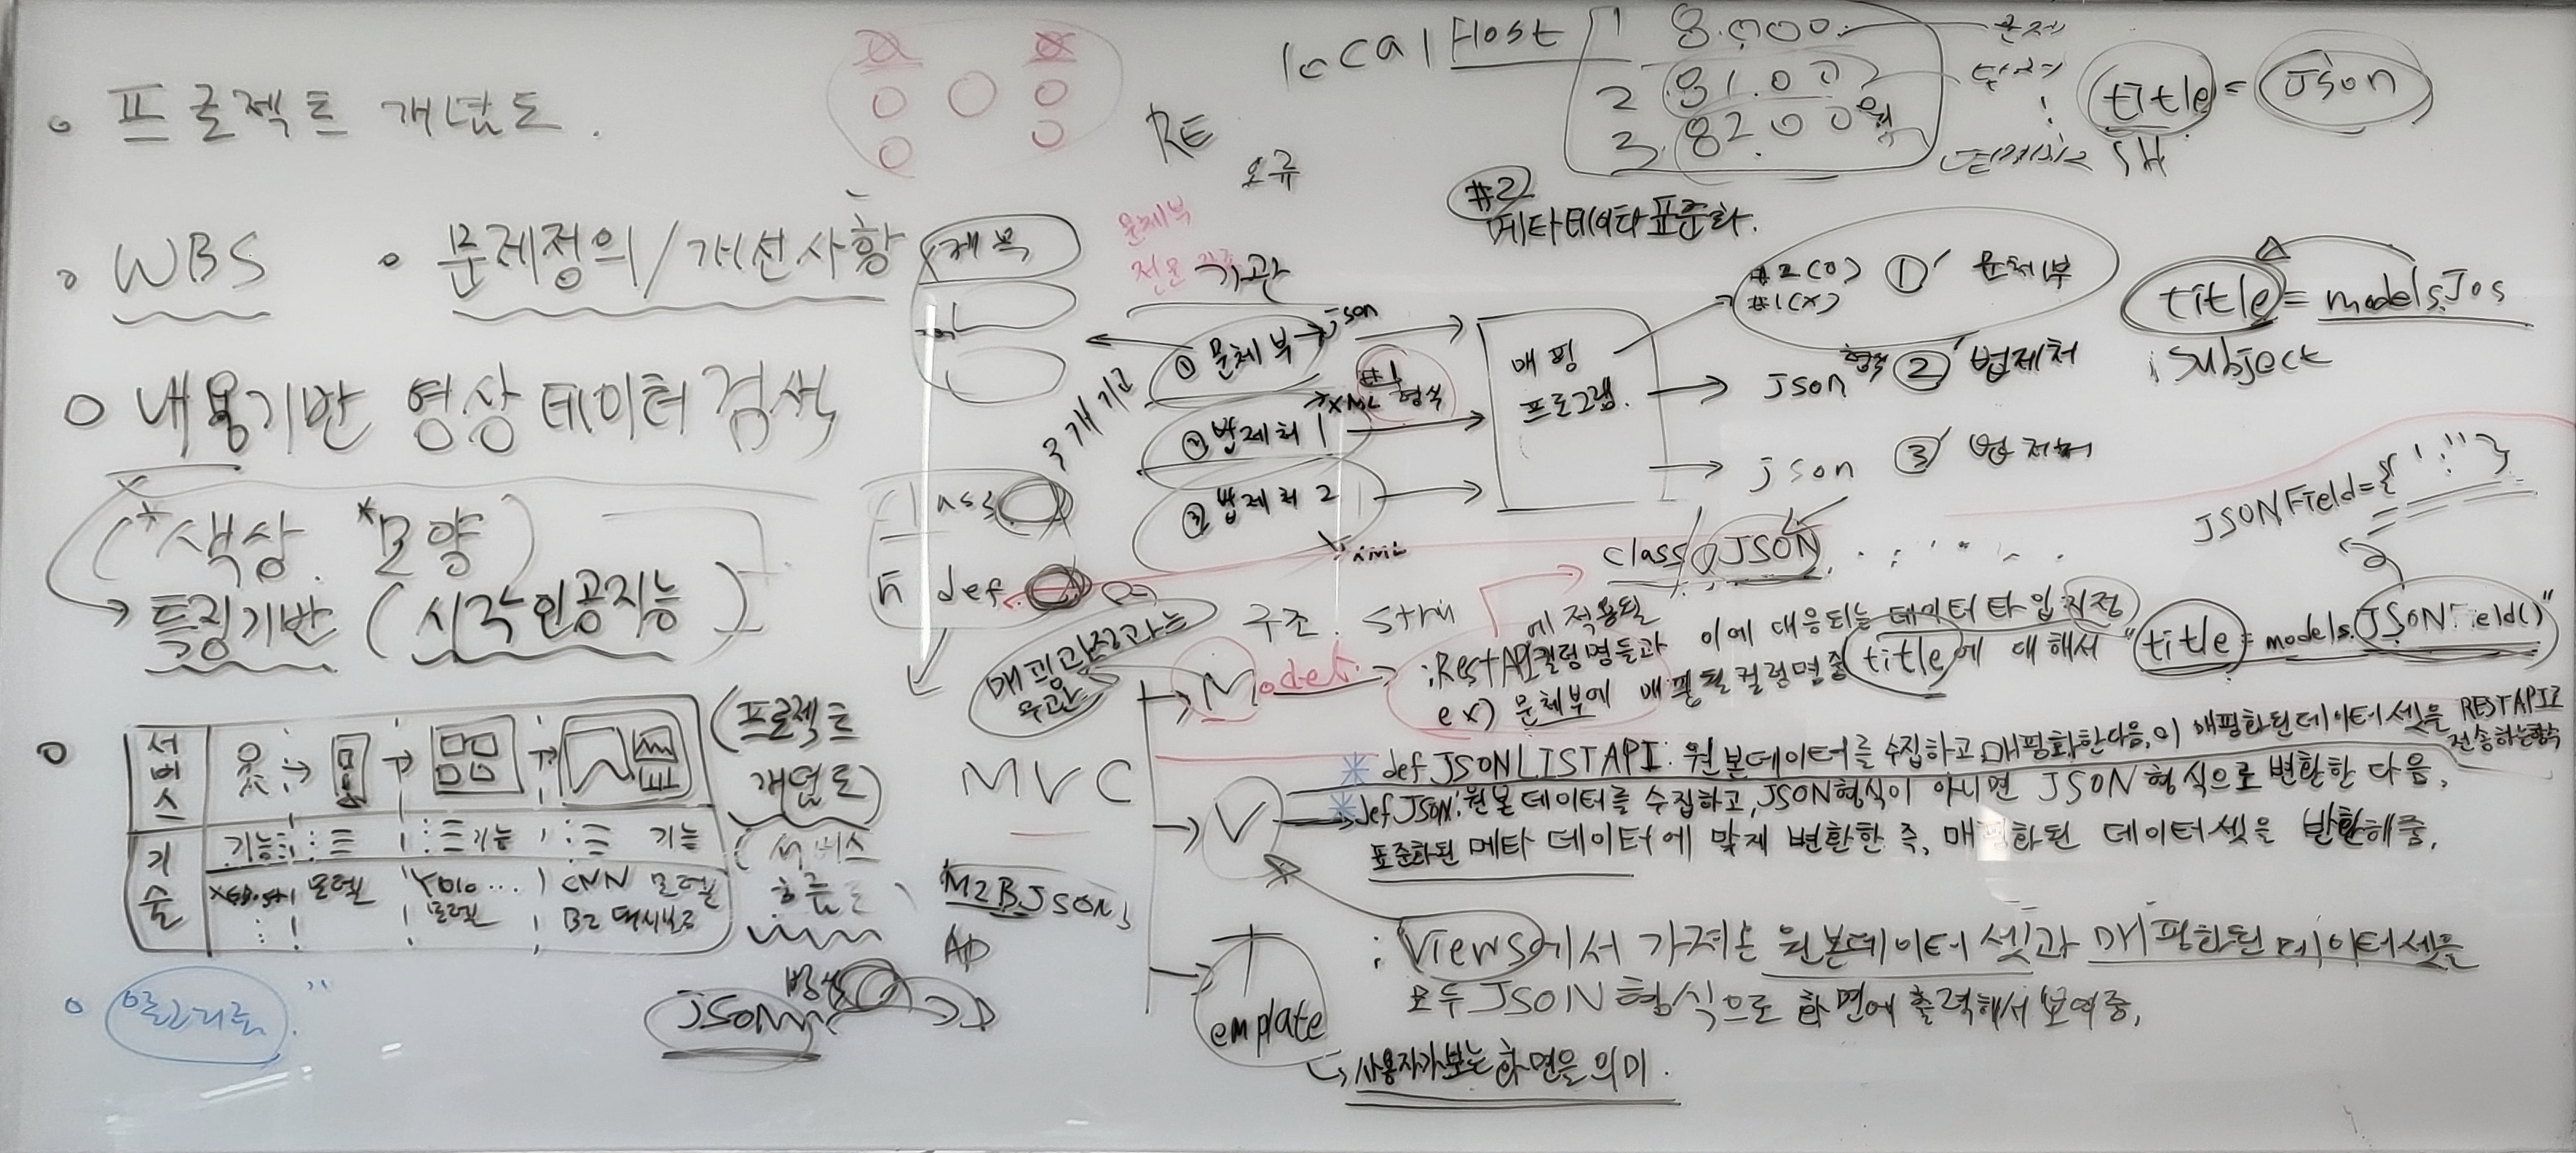 • 프로젝트 개념도.
• WBS
• 문제정의/개선사항
○ 내용기반 영상 데이터 검색
(*색상. *모양)
→ 특징기반 (시각인공지능)
서비스
기술
기능
기능
기능
모델
Yolo...
모델
CNN 모델
(프로젝트
개념도)
(서비스
흐름도
알고리즘.
제목
RE
오류
localHost
1 8.000
2 81.00
3. 82.00
title = Json
#2
메타데이타 표준화.
문체부
기관
3개기관
① 문체부 → json
② 법제처 1
→ XML
#1
형식
③ 법제처 2
XML
매핑
프로그램.
#2(o)
#1(x)
①′ 문체부
json 형식 ②′ 법제처
json ③′ 법제처
title = models.Jos
; subject
JSONField={' : ''}
class JSON
class
def
구조. stru
매핑과정과는
무관
Model
에 적용될
: RestAPI컬럼명들과 이에 대응되는 데이터 타입 지정
ex) 문체부에 매핑될 컬럼명중 title에 대해서 "title = models.JSONField()"
MVC
V
* def JSONLISTAPI : 원본데이터를 수집하고, 매핑화한다음, 이 매핑화된데이터셋을 RESTAPI로
전송하는함수
* def JSON : 원본데이터를 수집하고, JSON형식이 아니면 JSON형식으로 변환한 다음,
표준화된 메타 데이터에 맞게 변환한 즉, 매핑화된 데이터셋을 반환해줌.
M2BJSON
Template
; Views에서 가져온 원본데이터 셋과 매핑화된 데이터셋을
모두 JSON 형식으로 화면에 출력해서 보여줌.
↳ 사용자가보는 화면을 의미.
JSON